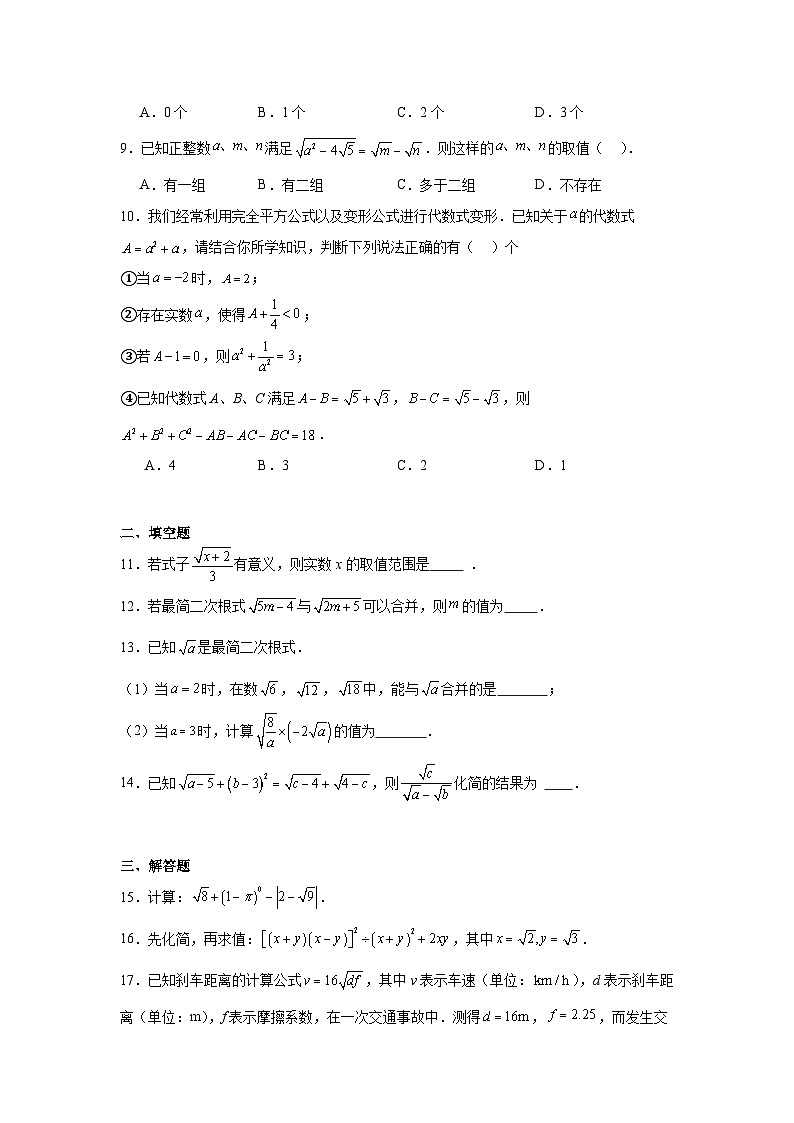 A．0个 B．1个 C．2个 D．3个
9．已知正整数a、m、n满足√(a²－4√5)=√m－√n．则这样的a、m、n的取值（ ）．
A．有一组 B．有二组 C．多于二组 D．不存在
10．我们经常利用完全平方公式以及变形公式进行代数式变形．已知关于a的代数式
A=a²+a，请结合你所学知识，判断下列说法正确的有（ ）个
①当a=−2时，A=2；
②存在实数a，使得A+1/4<0；
③若A−1=0，则a²+1/a²=3；
④已知代数式A、B、C满足A−B=√5+√3，B−C=√5−√3，则
A²+B²+C²−AB−AC−BC=18．
A．4 B．3 C．2 D．1
二、填空题
11．若式子√(x+2)/3有意义，则实数x的取值范围是_____ ．
12．若最简二次根式√(5m−4)与√(2m+5)可以合并，则m的值为_____．
13．已知√a是最简二次根式．
（1）当a=2时，在数√6，√12，√18中，能与√a合并的是_______；
（2）当a=3时，计算√(8/a)×(−2√a)的值为_______．
14．已知√(a−5)+(b−3)²=√(c−4)+√(4−c)，则√c/(√a−√b)化简的结果为 ____．
三、解答题
15．计算：√8+(1−π)⁰−|2−√9|．
16．先化简，再求值：[(x+y)(x−y)]²÷(x+y)²+2xy，其中x=√2,y=√3．
17．已知刹车距离的计算公式v=16√(df)，其中v表示车速（单位：km/h），d表示刹车距
离（单位：m），f表示摩擦系数，在一次交通事故中．测得d=16m，f=2.25，而发生交